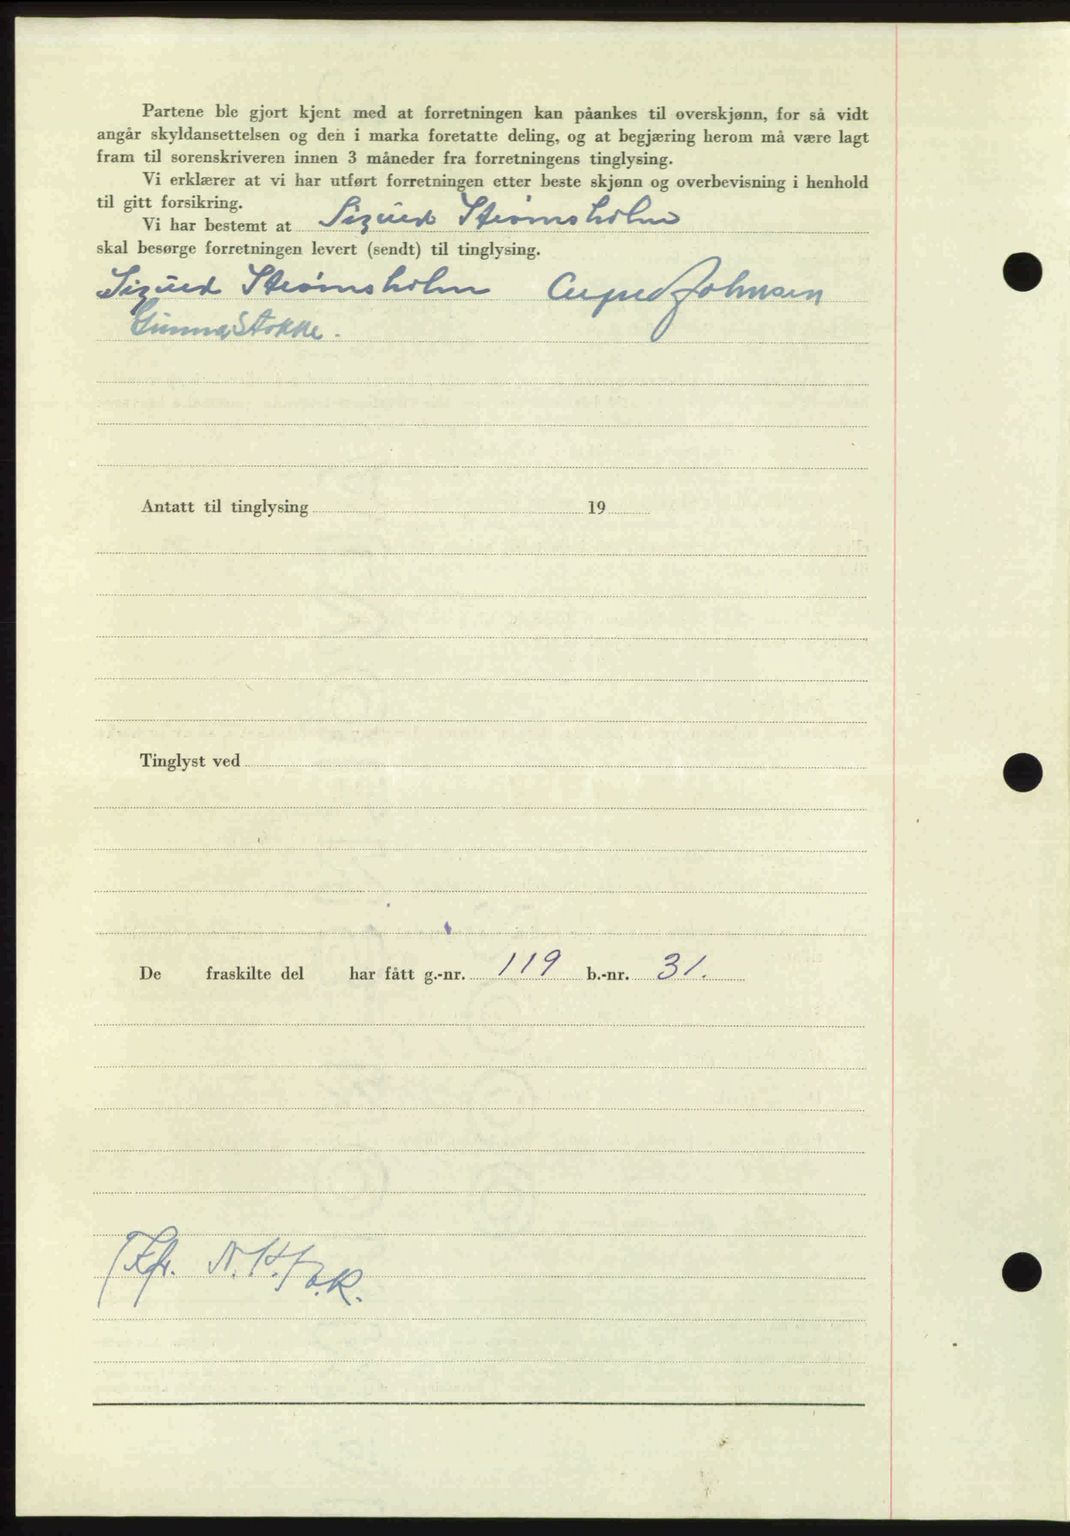 Partene ble gjort kjent med at forretningen kan påankes til overskjønn, for så vidt
angår skyldansettelsen og den i marka foretatte deling, og at begjæring herom må være lagt
fram til sorenskriveren innen 3 måneder fra forretningens tinglysing.
Vi erklærer at vi har utført forretningen etter beste skjønn og overbevisning i henhold
til gitt forsikring.
Vi har bestemt at Sigurd Strømsholm
skal besørge forretningen levert (sendt) til tinglysing.
Sigurd Strømsholm Johnsen
Gunnar Stokke.
Antatt til tinglysing 19
Tinglyst ved
De fraskilte del har fått g.-nr. 119 b.-nr. 31.